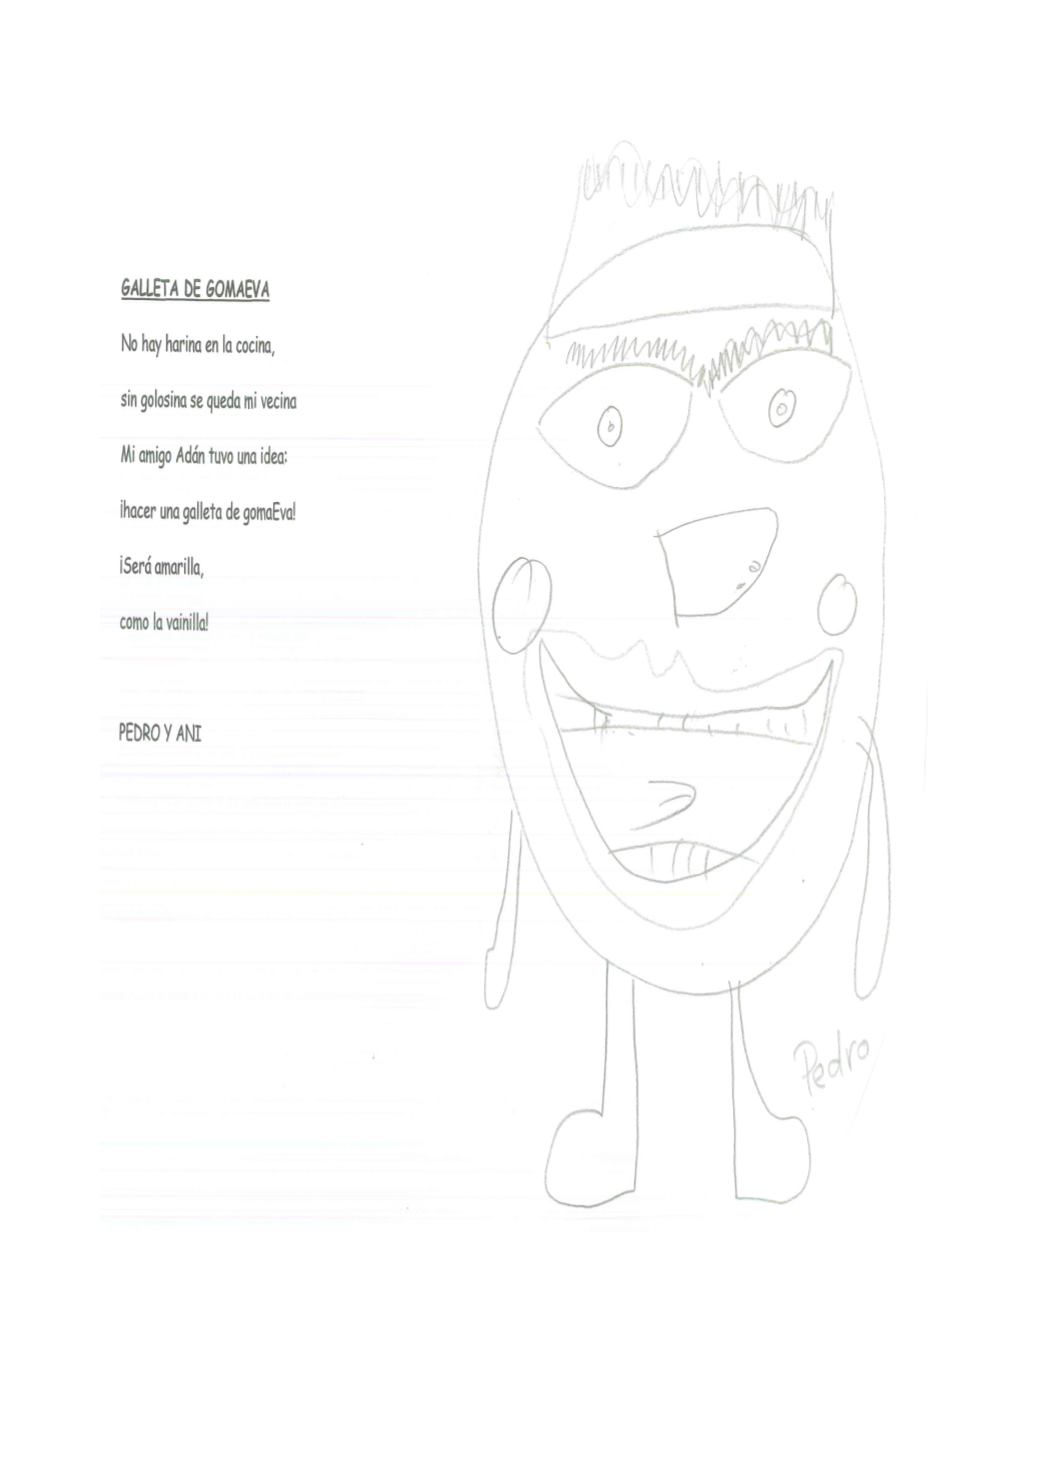 GALLETA DE GOMAEVA
No hay harina en la cocina,
sin golosina se queda mi vecina
Mi amigo Adán tuvo una idea:
¡hacer una galleta de gomaEva!
¡Será amarilla,
como la vainilla!
PEDRO Y ANI
Pedro